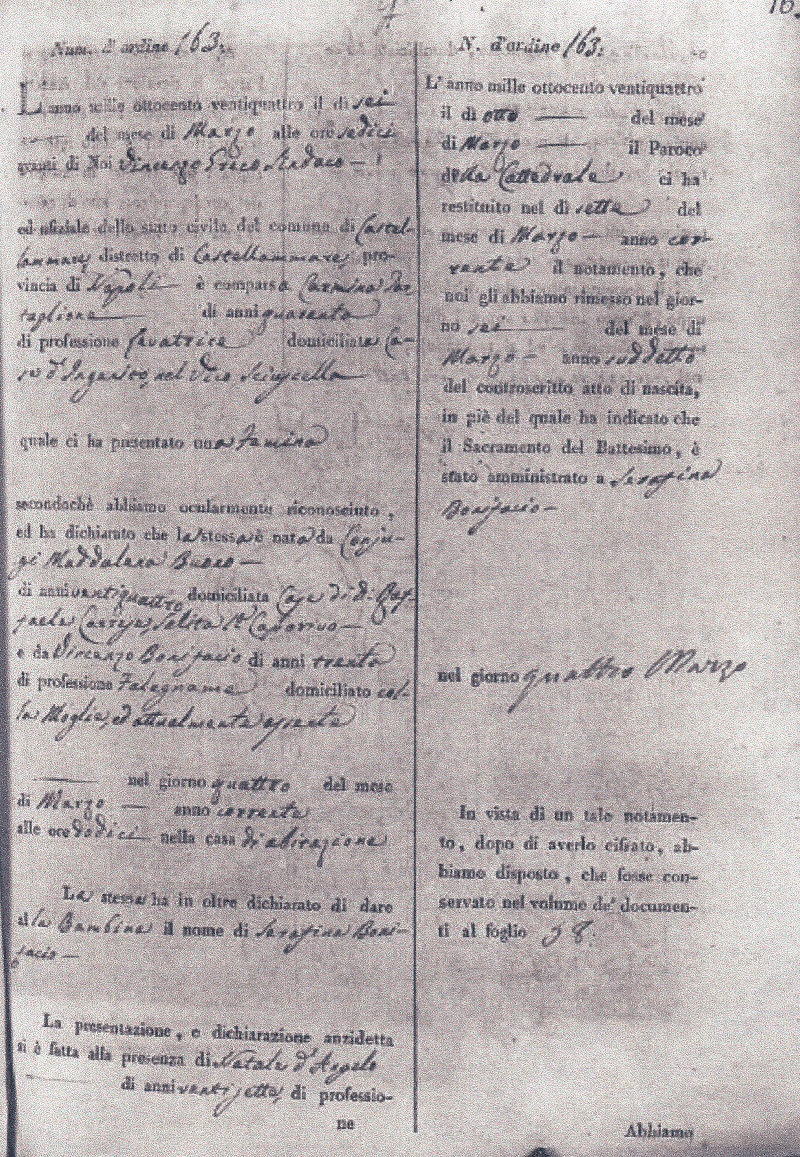 Num. d'ordine 163:
L'anno mille ottocento ventiquattro il dì sei
del mese di Marzo alle ore sedici
avanti di Noi Vincenzo Sindaco
ed ufiziale dello stato civile del comune di Castel-
lammare distretto di Castellammare, pro-
vincia di Napoli è comparsa Carmina Car
taglione di anni quaranta
di professione levatrice domiciliata Ca-
se d' nel Vico
quale ci ha presentato una femina
secondochè abbiamo ocularmente riconosciuto,
ed ha dichiarato che la stessa è nata da Conju-
gi Maddalena Buono
di anni ventiquattro domiciliata Case di D. Raf-
faele Salita
e da Vincenzo Bonifacio di anni trenta
di professione Falegname domiciliato col-
la Moglie, ed attualmente assente
nel giorno quattro del mese
di Marzo anno corrente
alle ore dodici nella casa di abitazione
La stessa ha in oltre dichiarato di dare
alla Bambina il nome di Serafina Boni-
facio
La presentazione, e dichiarazione anzidetta
si è fatta alla presenza di Natale d'Angelo
di anni ventisette, di professio-
ne
163
N. d'ordine 163:
L'anno mille ottocento ventiquattro
il dì otto del mese
di Marzo il Paroco
della Cattedrale ci ha
restituito nel dì sette del
mese di Marzo anno cor-
rente il notamento, che
noi gli abbiamo rimesso nel gior-
no sei del mese di
Marzo anno suddetto
del controscritto atto di nascita,
in piè del quale ha indicato che
il Sacramento del Battesimo, è
stato amministrato a Serafina
Bonifacio
nel giorno quattro Marzo
In vista di un tale notamen-
to, dopo di averlo cifrato, ab-
biamo disposto, che fosse con-
servato nel volume de' documen-
ti al foglio 58.
Abbiamo